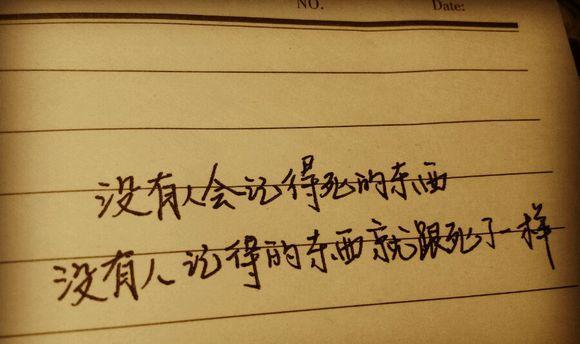 NO. Date:
没有人会记得死的东西
没有人记得的东西就跟死了一样